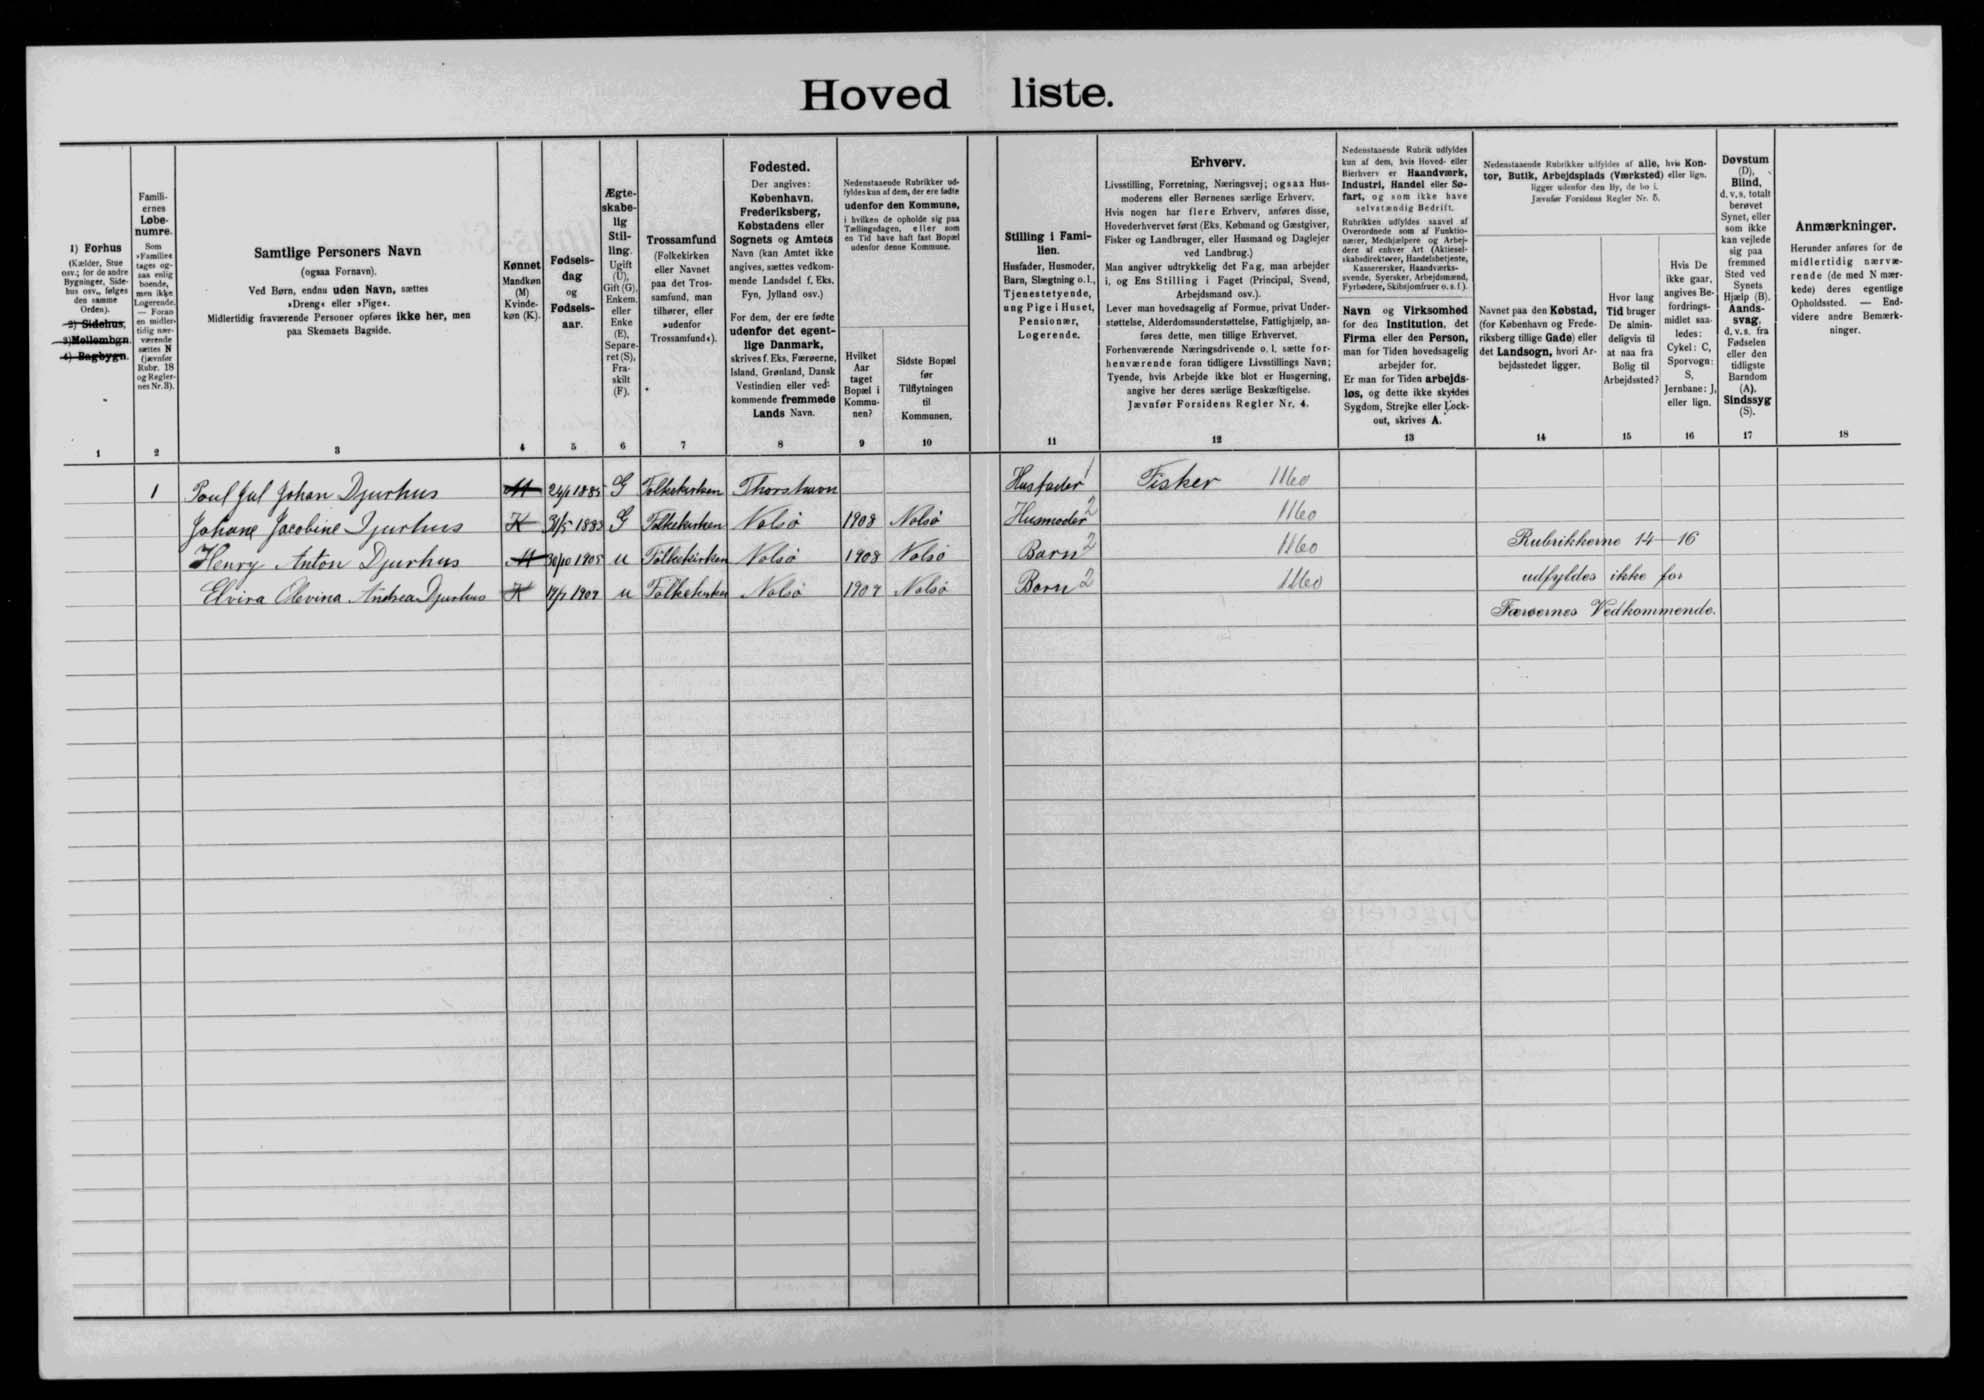 Hovedliste.
1) Forhus
(Kælder, Stue
osv.; for de andre
Bygninger, Side-
hus osv., følges
den samme
Orden).
2) Sidehus,
3) Mellembgn.
4) Bagbygn.
1
Famili-
ernes
Løbe-
numre.
Som
»Familie«
tages og-
saa enlig
boende,
men ikke
Logerende.
— Foran
en midler-
tidig nær-
værende
sættes N
(jævnfør
Rubr. 18
og Regler-
nes Nr. 3).
2
Samtlige Personers Navn
(ogsaa Fornavn).
Ved Børn, endnu uden Navn, sættes
»Dreng« eller »Pige«.
Midlertidig fraværende Personer opføres ikke her, men
paa Skemaets Bagside.
3
Kønnet
Mandkøn
(M)
Kvinde-
køn (K).
4
Fødsels-
dag
og
Fødsels-
aar.
5
Ægte-
skabe-
lig
Stil-
ling.
Ugift
(U),
Gift (G),
Enkem.
eller
Enke
(E),
Separe-
ret (S),
Fra-
skilt
(F).
6
Trossamfund
(Folkekirken
eller Navnet
paa det Tros-
samfund, man
tilhører, eller
»udenfor
Trossamfund«).
7
Fødested.
Der angives:
København,
Frederiksberg,
Købstadens eller
Sognets og Amtets
Navn (kan Amtet ikke
angives, sættes vedkom-
mende Landsdel f. Eks.
Fyn, Jylland osv.)
For dem, der ere fødte
udenfor det egent-
lige Danmark,
skrives f. Eks. Færøerne,
Island, Grønland, Dansk
Vestindien eller ved-
kommende fremmede
Lands Navn.
8
Nedenstaaende Rubrikker ud-
fyldes kun af dem, der ere fødte
udenfor den Kommune,
i hvilken de opholde sig paa
Tællingsdagen, eller som
en Tid have haft fast Bopæl
udenfor denne Kommune.
Hvilket
Aar
taget
Bopæl i
Kommu-
nen?
9
Sidste Bopæl
før
Tilflytningen
til
Kommunen.
10
Stilling i Fami-
lien.
Husfader, Husmoder,
Barn, Slægtning o. l.,
Tjenestetyende,
ung Pige i Huset,
Pensionær,
Logerende.
11
Erhverv.
Livsstilling, Forretning, Næringsvej; ogsaa Hus-
moderens eller Børnenes særlige Erhverv.
Hvis nogen har flere Erhverv, anføres disse,
Hovederhvervet først (Eks. Købmand og Gæstgiver,
Fisker og Landbruger, eller Husmand og Daglejer
ved Landbrug.)
Man angiver udtrykkelig det Fag, man arbejder
i, og Ens Stilling i Faget (Principal, Svend,
Arbejdsmand osv.).
Lever man hovedsagelig af Formue, privat Under-
støttelse, Alderdomsunderstøttelse, Fattighjælp, an-
føres dette, men tillige Erhvervet.
Forhenværende Næringsdrivende o. l. sætte for-
henværende foran tidligere Livsstillings Navn;
Tyende, hvis Arbejde ikke blot er Husgerning,
angive her deres særlige Beskæftigelse.
Jævnfør Forsidens Regler Nr. 4.
12
Nedenstaaende Rubrik udfyldes
kun af dem, hvis Hoved- eller
Bierhverv er Haandværk,
Industri, Handel eller Sø-
fart, og som ikke have
selvstændig Bedrift.
Rubrikken udfyldes saavel af
Overordnede som af Funktio-
nærer, Medhjælpere og Arbej-
dere af enhver Art (Aktiesel-
skabsdirektører, Handelsbetjente,
Kasserersker, Haandværks-
svende, Syersker, Arbejdsmænd,
Fyrbødere, Skibsjomfruer o. s. f.).
Navn og Virksomhed
for den Institution, det
Firma eller den Person,
man for Tiden hovedsagelig
arbejder for.
Er man for Tiden arbejds-
løs, og dette ikke skyldes
Sygdom, Strejke eller Lock-
out, skrives A.
13
Nedenstaaende Rubrikker udfyldes af alle, hvis Kon-
tor, Butik, Arbejdsplads (Værksted) eller lign.
ligger udenfor den By, de bo i.
Jævnfør Forsidens Regler Nr. 5.
Navnet paa den Købstad,
(for København og Frede-
riksberg tillige Gade) eller
det Landsogn, hvori Ar-
bejdsstedet ligger.
14
Hvor lang
Tid bruger
De almin-
deligvis til
at naa fra
Bolig til
Arbejdssted?
15
Hvis De
ikke gaar,
angives Be-
fordrings-
midlet saa-
ledes:
Cykel: C,
Sporvogn:
S,
Jernbane: J,
eller lign.
16
Døvstum
(D),
Blind,
d. v. s. totalt
berøvet
Synet, eller
som ikke
kan vejlede
sig paa
fremmed
Sted ved
Synets
Hjælp (B).
Aands-
svag,
d. v. s. fra
Fødselen
eller den
tidligste
Barndom
(A).
Sindssyg
(S).
17
Anmærkninger.
Herunder anføres for de
midlertidig nærvæ-
rende (de med N mær-
kede) deres egentlige
Opholdssted. — End-
videre andre Bemærk-
ninger.
18
1 Poul Jul Johan Djurhus M 1885 G Folkekirken Thorshavn Husfader 1 Fisker 1160
Johane Jacobine Djurhus K 31/5 1883 G Folkekirken Nolsö 1908 Nolsö Husmoder 2 1160
Henry Anton Djurhus M 30/10 1905 u Folkekirken Nolsö 1908 Nolsö Barn 2 1160
Elvira Olevina Andrea Djurhus K u Folkekirken Nolsö Nolsö Barn 2 1160
Rubrikkerne 14-16
udfyldes ikke for
Færøernes Vedkommende.